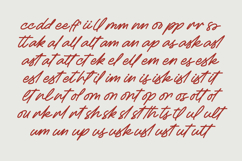 cc dd ee ff ii ll mm nn oo pp rr ss
tt ak al all alt am an ap as ask asl
ast at att ct ek el ell em en es esk
esl est eth tf il im in is isk isl ist it
lt nl nt ol om on ont op or os ott ot
ou rk rl rt sh sk sl st th ts tl ul ult
um un up us usk usl ust ut utt